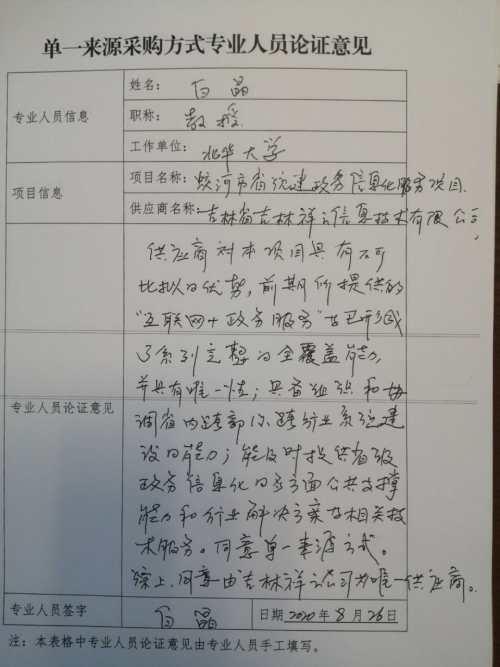 单一来源采购方式专业人员论证意见
专业人员信息
姓名： 白晶
职称： 教授
工作单位： 北华大学
项目信息
项目名称：蛟河市省统建政务信息化服务项目
供应商名称：吉林省吉林祥云信息技术有限公司
专业人员论证意见
供应商对本项目具有不可
比拟的优势，前期所提供的
“互联网+政务服务”等已形成
了系列完整的全覆盖能力，
并具有唯一性；具备组织和协
调省内跨部门、跨行业系统建
设的能力；能及时提供省级
政务信息化的多方面公共支撑
能力和行业解决方案及相关技
术服务。同意单一来源方式。
综上，同意由吉林祥云公司为唯一供应商。
专业人员签字 白晶 日期 2020年8月26日
注：本表格中专业人员论证意见由专业人员手工填写。